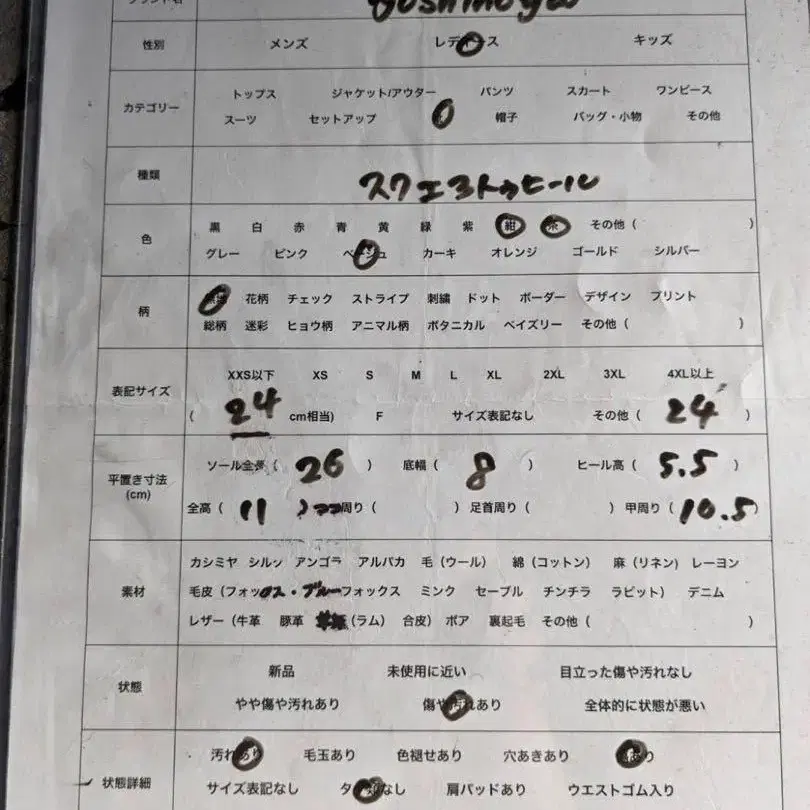 ブランド名 Yoshinoya
性別 メンズ レディース キッズ
トップス ジャケット/アウター パンツ スカート ワンピース
カテゴリー
スーツ セットアップ 帽子 バッグ・小物 その他
種類 スクエヨトゥヒール
黒 白 赤 青 黄 緑 紫 紺 茶 その他 ( )
色
グレー ピンク ベージュ カーキ オレンジ ゴールド シルバー
無地 花柄 チェック ストライプ 刺繍 ドット ボーダー デザイン プリント
柄
総柄 迷彩 ヒョウ柄 アニマル柄 ボタニカル ペイズリー その他 ( )
XXS以下 XS S M L XL 2XL 3XL 4XL以上
表記サイズ
( 24 cm相当) F サイズ表記なし その他 ( 24 )
ソール全長 ( 26 ) 底幅 ( 8 ) ヒール高 ( 5.5 )
平置き寸法
(cm)
全高 ( 11 ) 周り ( ) 足首周り ( ) 甲周り ( 10.5 )
カシミヤ シルク アンゴラ アルパカ 毛 (ウール) 綿 (コットン) 麻 (リネン) レーヨン
素材 毛皮 (フォックス・ブルーフォックス ミンク セーブル チンチラ ラビット) デニム
レザー (牛革 豚革 (ラム) 合皮) ボア 裏起毛 その他 ( )
新品 未使用に近い 目立った傷や汚れなし
状態
やや傷や汚れあり 傷や汚れあり 全体的に状態が悪い
汚れあり 毛玉あり 色褪せあり 穴あきあり あり
状態詳細
サイズ表記なし タグ なし 肩パッドあり ウエストゴム入り